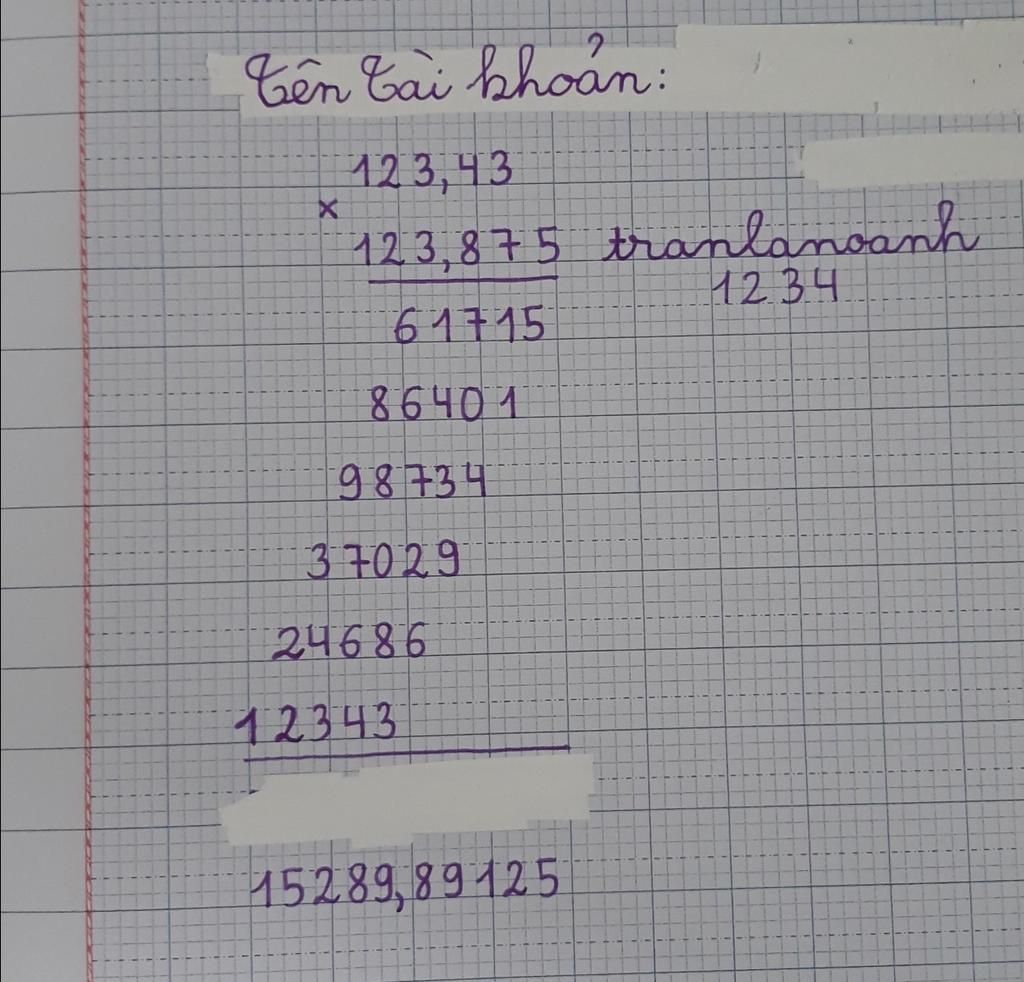 Tên tài khoản:
123,43
×
123,875 tranlanoanh
1234
61715
86401
98734
37029
24686
12343
15289,89125